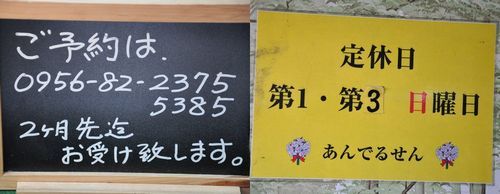 ご予約は.
0956-82-2375
5385
2ヶ月先迄
お受け致します。
定休日
第1・第3 日曜日
あんでるせん